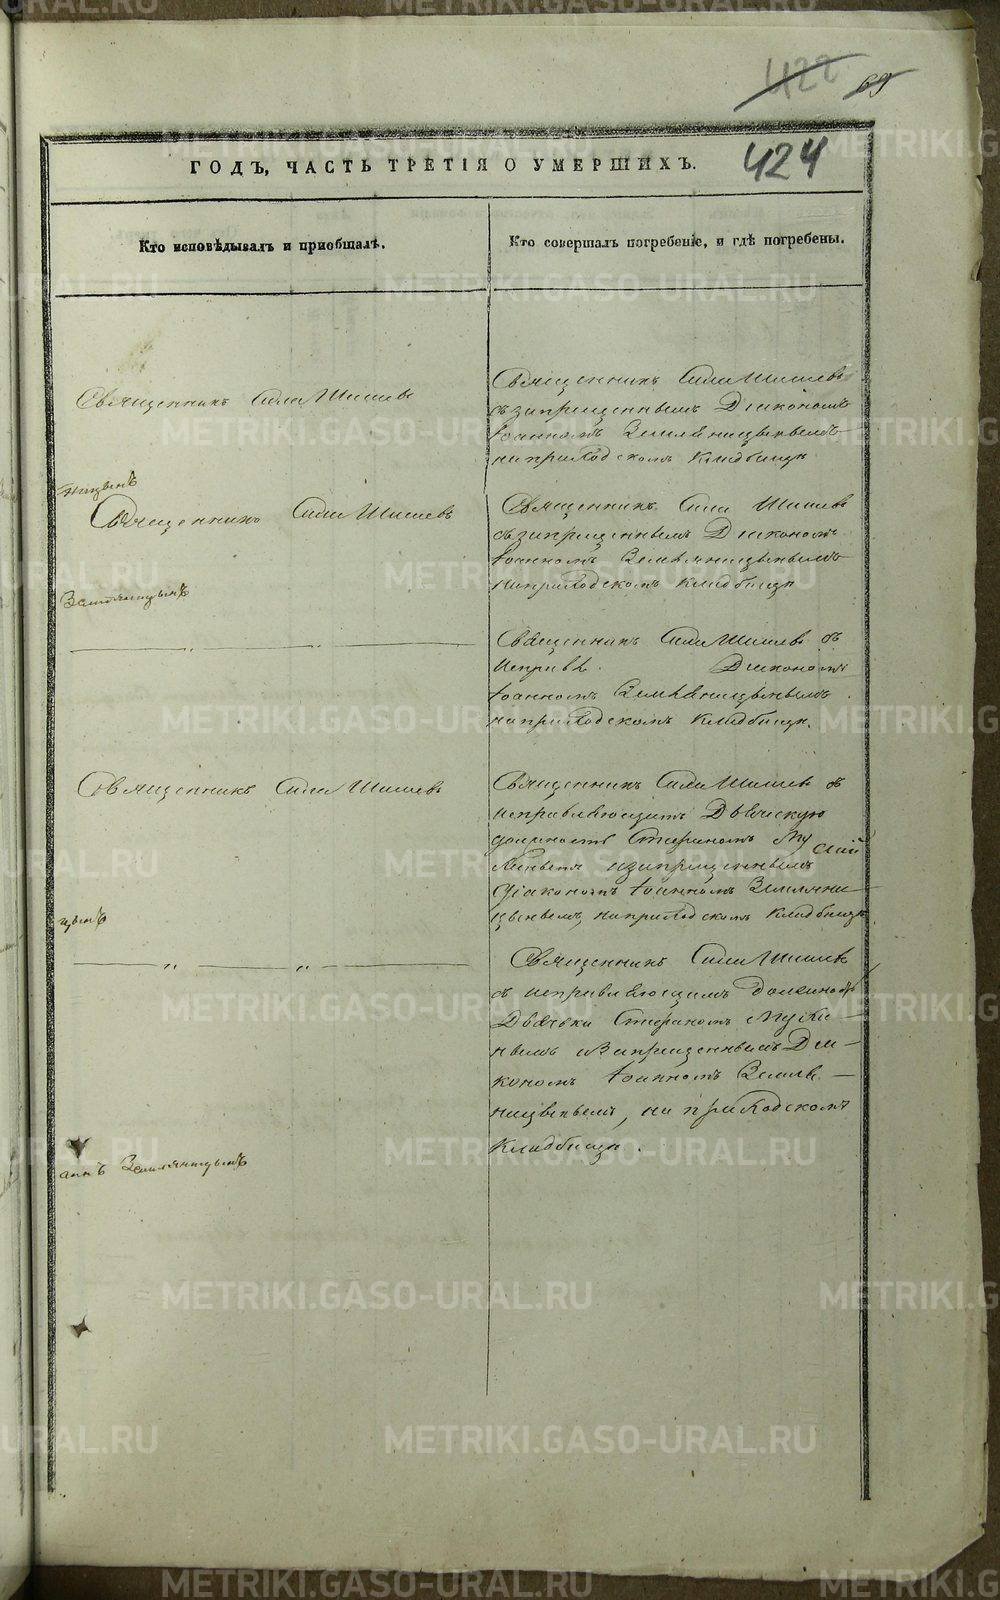 422 69
424
ГОДЪ, ЧАСТЬ ТРЕТІЯ О УМЕРШИХЪ.
Кто исповѣдывалъ и пріобщалъ.
Кто совершалъ погребеніе, и гдѣ погребены.
Священникъ Сила Шишевъ
Священникъ Сила Шишевъ
съ запрещеннымъ Діакономъ
Іоанномъ Земляницынымъ
на приходскомъ кладбищѣ
ницынъ
Священникъ Сила Шишевъ
Священникъ Сила Шишевъ
съ запрещеннымъ Діакономъ
Іоанномъ Земляницынымъ
на приходскомъ кладбищѣ
Земляницынъ
— „ — „ —
Священникъ Сила Шишевъ съ
Діакономъ
Іоанномъ Земляницынымъ
на приходскомъ кладбищѣ.
Священникъ Сила Шишевъ
Священникъ Сила Шишевъ съ
исправляющимъ Дьячскую
должность Стефаномъ
и запрещеннымъ
діакономъ Іоанномъ Земляни—
цынымъ, на приходскомъ кладбищѣ
цынъ
— „ — „ —
Священникъ Сила Шишевъ
съ исправляющимъ должность
Дьячка Стефаномъ
и запрещеннымъ Діа—
кономъ Іоанномъ Земля—
ницынымъ, на приходскомъ
кладбищѣ.
аннъ Земляницынъ
METRIKI.GASO-URAL.RU